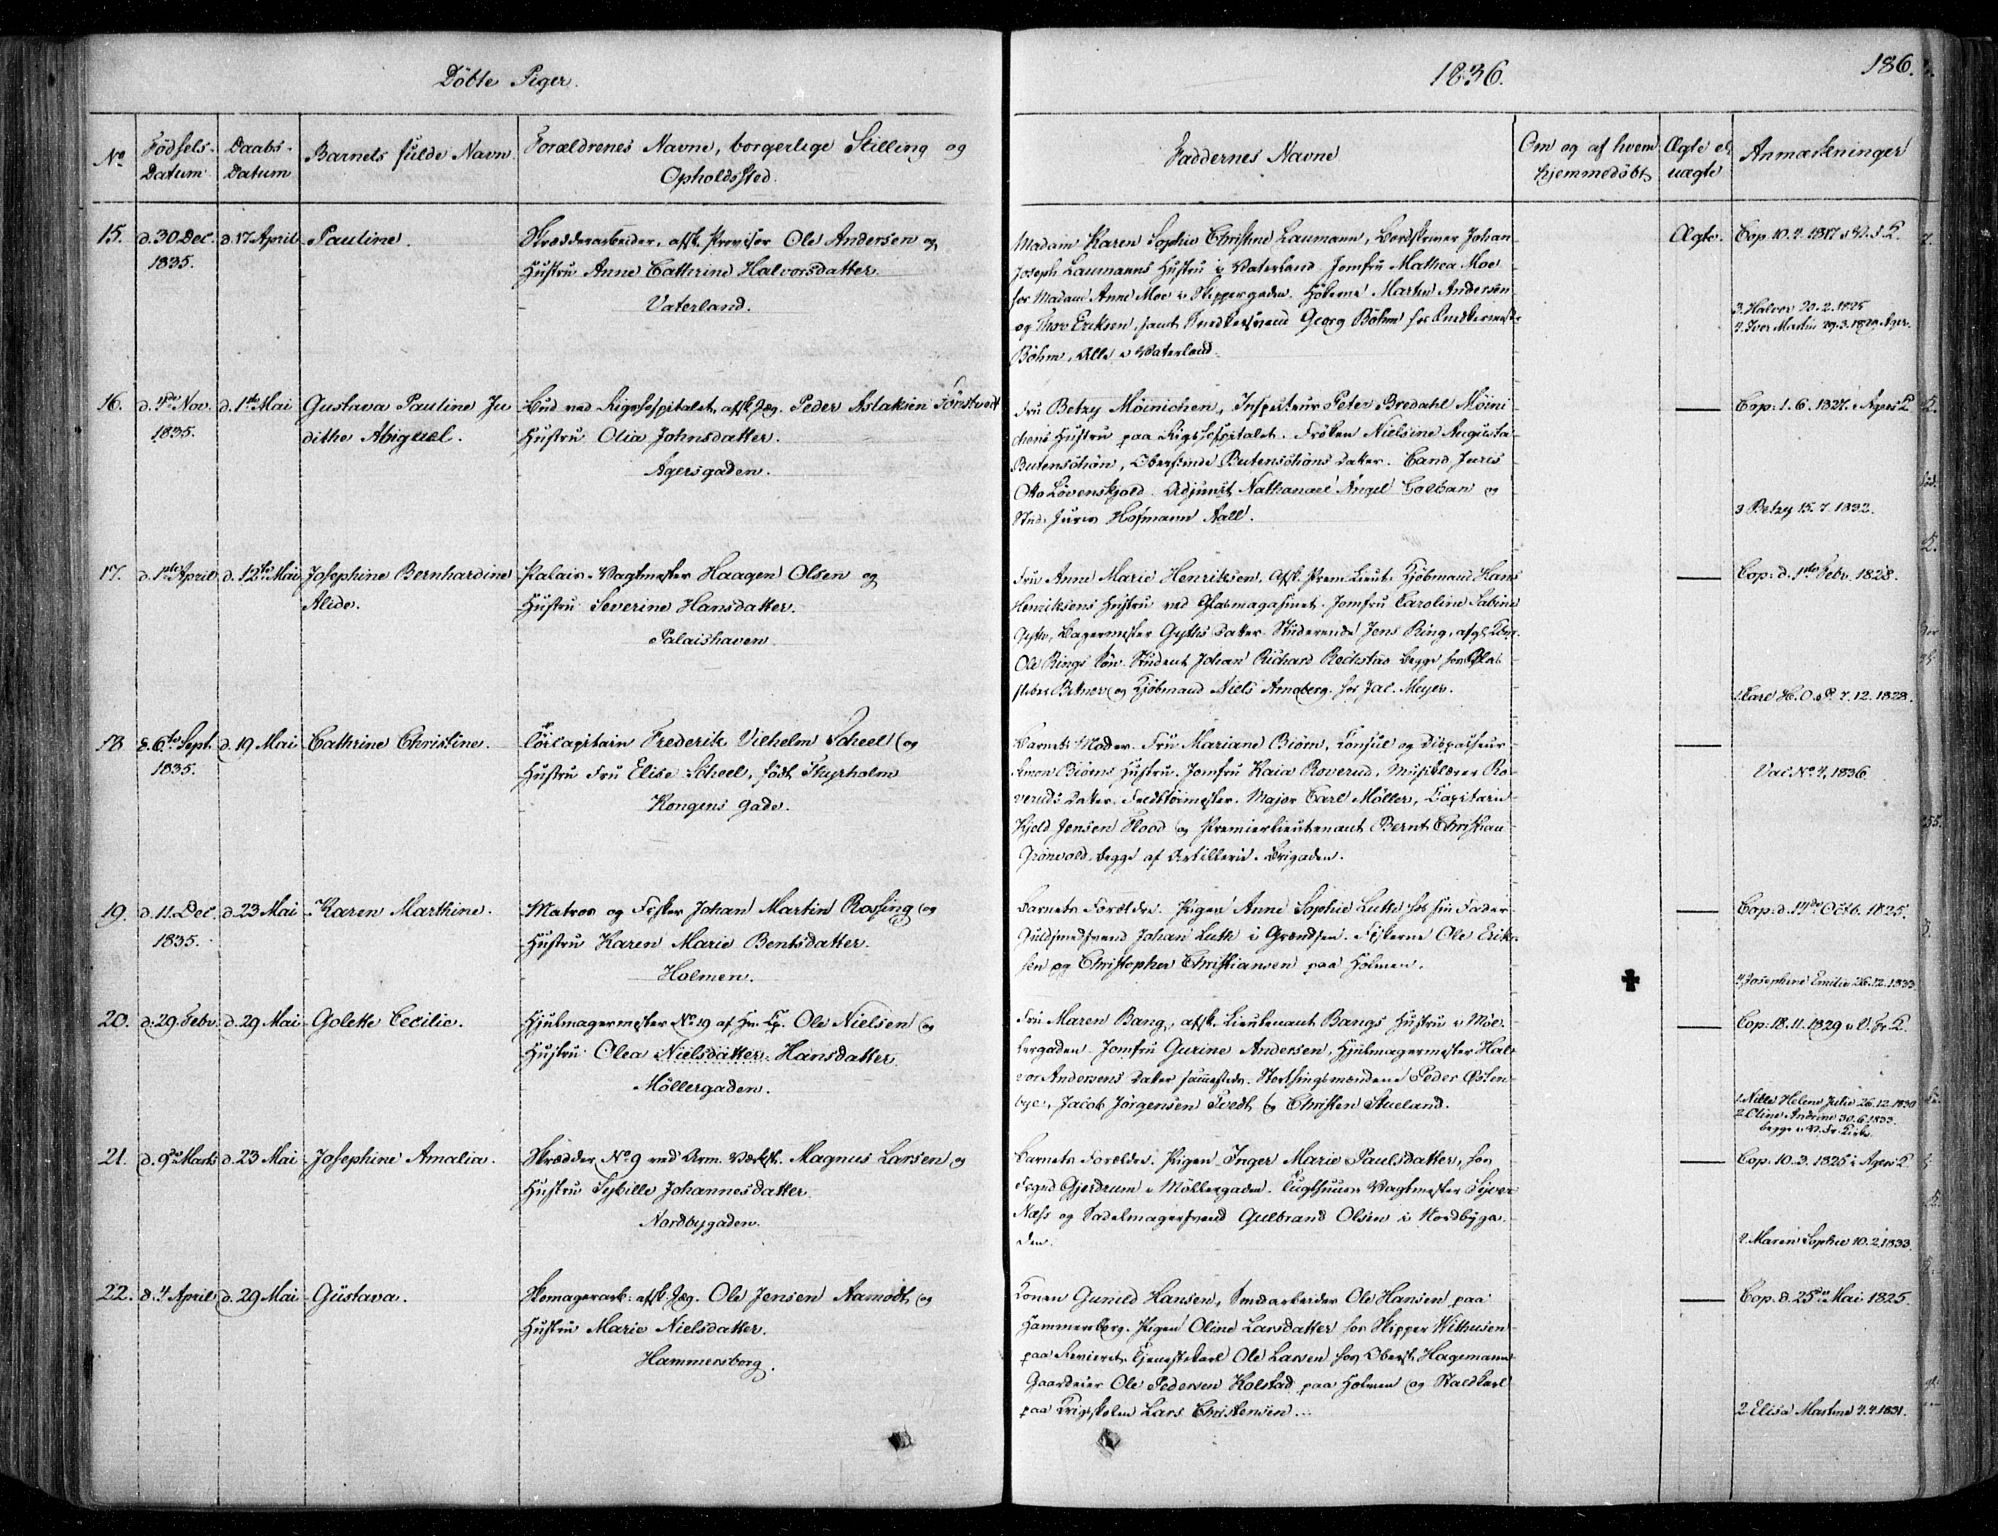 Döbte Piger.
1836.
186.
No
Födsels-Datum
Daabs-Datum
Barnets fulde Navn
Forældrenes Navne, borgerlige Stilling og
Opholdssted.
Faddernes Navne
Om og af hvem
hjemmedöbt
Ægte el.
uægte
Anmærkninger
15. d. 30 Dec. d. 17 April Pauline. Skrædderarbeider, afsk. Proviser Ole Andersen og
1835. Hustru Anne Cathrine Halvorsdatter
Vaterland.
Madam Karen Sophie Christine Laumann, Bordskriver Johan
Joseph Laumanns Hustru i Vaterland. Jomfru Mathea Moe
hos Madam Anne Moe i Skippergaden. Hökerne Martin Andersen
og Thor Eriksen, samt Snedkersvend Georg Böhm hos Snedkermester
Böhm, Alle i Vaterland.
Ægte.
Cop. 10.4.1817 i
3. Halvor 20.2.1825
4. Iver Martin 29.3.1829 Ager.
16. d. 4de Nov. d. 1ste Mai Gustava Pauline Ju Bud ved Rigshospitalet, afsk. Jæg. Peder Aslaksen
1835. dithe Abiguel. Hustru Olia Johnsdatter.
Agersgaden.
Fru Betzy Möinichen, Inspecteur Peter Bredahl Möini
chens Hustru paa Rigshospitalet. Fröken Nielsine Augusta
Butenschön, Oberstinde Butenschöns Datter. Cand. Juris
Otto Lövenskjold. Adjunct Nathanael Angel Colban og
Stud. Juris Hofmann Aall.
Cop. 1.6.1827 i Agers K
3 Betzy 15.7.1832.
17. d. 1ste April d. 12te Mai Josephine Bernhardine Palais-Vagtmester Haagen Olsen og
Alide. Hustru Severine Hansdatter.
Palaishaven.
Fru Anne Marie Henriksen, Afsk. Prem. Lieut. Kjöbmand Hans
Henriksens Hustru ved Glasmagasinet. Jomfru Caroline Sabine
Gyth, Bagermester Gyths Datter. Studerende Jens Ring,
Ole Rings Sön. Student Johan Richard begge hos
og Kjöbmand Niels Amberg hos Jac. Meyer.
Cop. d. 1ste Febr. 1828.
1 Carl H. O. 7.12.1828.
18 d. 6te Sept. d. 19 Mai Cathrine Christine. Frederik Vilhelm Scheel og
1835. Hustru Fru Elise Scheel, født Thyrholm
Kongens gade.
Barnets Moder. Fru Mariane Biörn, Consul og Dispaiseur
Simon Biörns Hustru. Jomfru Kaia Roverud, Musiklærer Ro
veruds Datter. Feldttöimester, Major Carl Möller, Capitain
Kjeld Jensen Flood og Premierlieutenant Bernt Christian
Grönvold, begge af Artillerie-Brigaden.
Vac. No 4, 1836.
19. d. 11. Dec. d. 23 Mai Karen Marthine. Matros og Fisker Johan Martin Rossing og
1835. Hustru Karen Marie Bentsdatter.
Holmen.
Barnets Forældre. Pigen Anne Sophie Luth hos sin Fader
Guldsmedsvend Johan Luth i Grændsen. Fiskerne Ole Erik-
sen og Christopher Christiansen paa Holmen.
Cop. d. 14de Octb. 1825.
4. Josephine Emilie 26.12.1833
20. d. 29 Febr. d. 29 Mai Golette Cecilie. Hjulmagermester No 19 af Ole Nielsen og
Hustru Olea Nielsdatter. Hansdatter.
Möllergaden.
Fru Maren Bang, afsk. Lieutenant Bangs Hustru i Möl-
lergaden. Jomfru Gurine Andersen, Hjulmagermester Hal-
vor Andersens Datter sammesteds. Storthingsmændene Peder Östen
bye, Jacob Jörgensen Tvedt og Christen Stueland.
Cop. 18.11.1829 i V. Fr. K.
1. Nille Helene Julie 26.12.1830
2. Oline Andrine 30.6.1833
begge i V. Fr. Kirke
21. d. 9de Marts d. 23 Mai Josephine Amalia. Skrædder No 9 ved Arm. Værkst. Magnus Larsen og
Hustru Sybille Johannesdatter.
Nordbygaden.
Barnets Forældre. Pigen Inger Marie Paulsdatter, hos
Foged Gjerdrum i Möllergaden. Tugthuus-Vagtmester Syver
Næss og Sadelmagersvend Gulbrand Olsen i Nordbyga-
den.
Cop. 10.3.1825 i Agers K
4 Maren Sophie 10.2.1833.
22. d. 4 April d. 29 Mai Gustava. Skomagerark. afsk. Jæg. Ole Jensen Aamodt, og
Hustru Marie Nielsdatter.
Hammersborg.
Konen Gunild Hansen, Smedarbeider Ole Hansen paa
Hammersborg. Pigen Oline Larsdatter hos Skipper Withusen
paa Revieret. Tjenestekarl Ole Larsen hos Oberst Hagemann
Gaardeier Ole Pedersen Kolstad paa Holmen og Staldkarl
paa Krigsskolen Lars Christensen.
Cop. d. 25de Mai 1825.
2 Elisa Martine 4.4.1831.